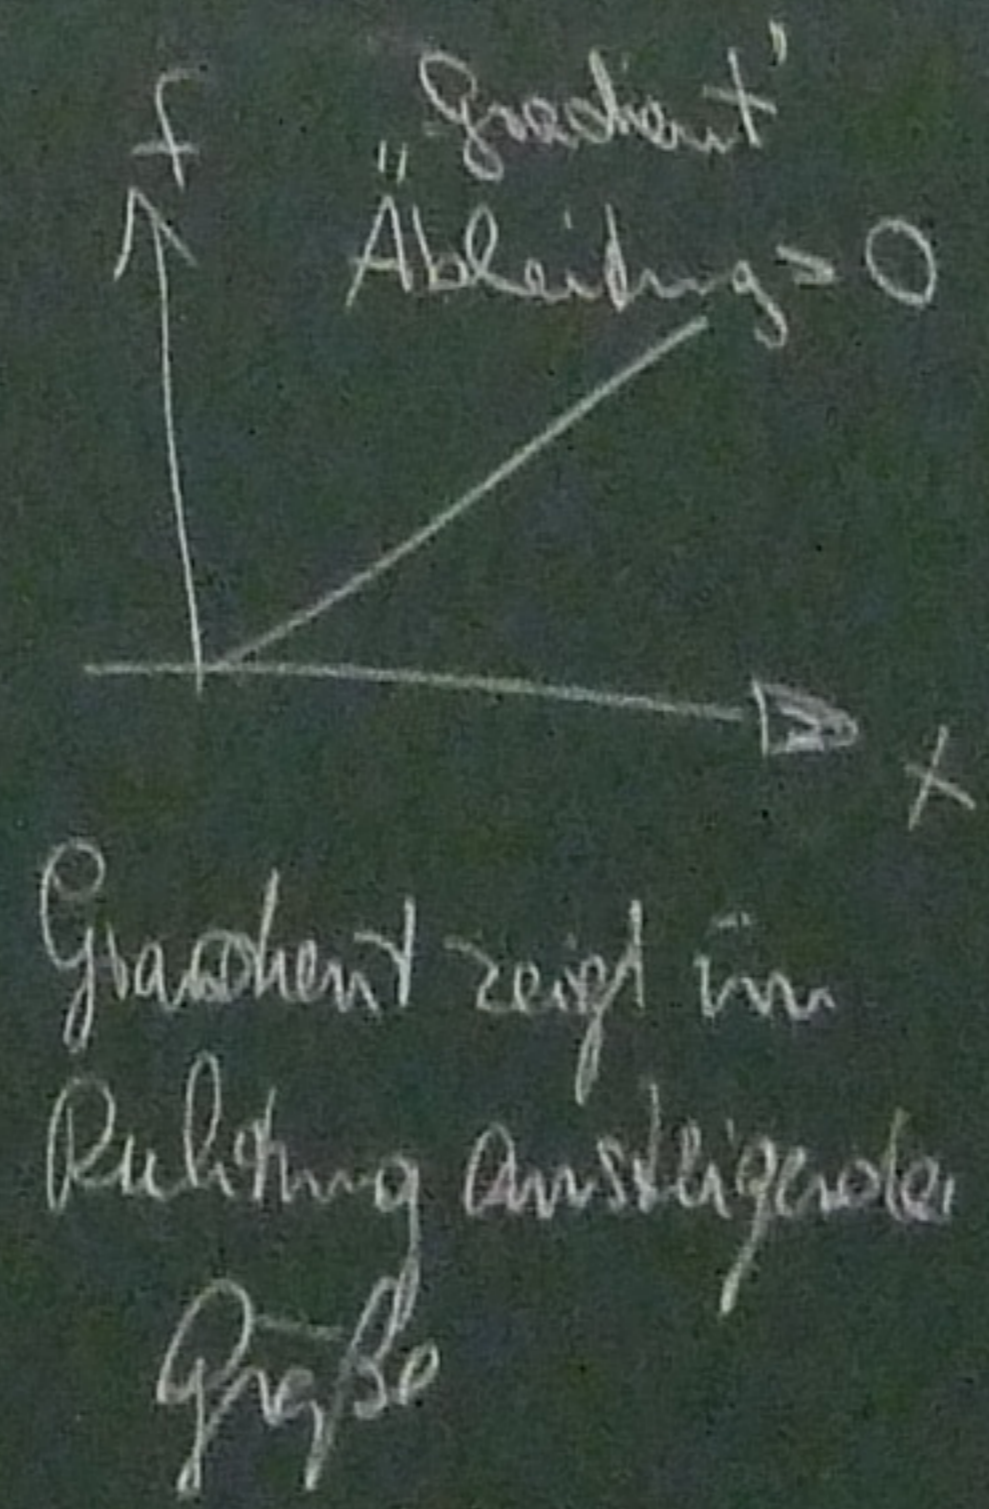 f
"Gradient"
Ableitung > 0
x
Gradient zeigt in
Richtung ansteigender
Größe